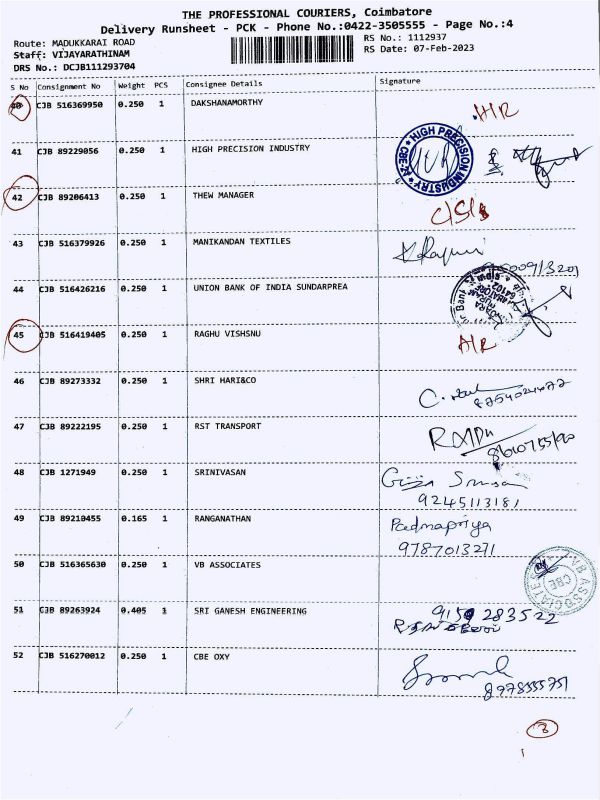 THE PROFESSIONAL COURIERS, Coimbatore
Delivery Runsheet - PCK - Phone No.:0422-3505555 - Page No.:4
Route: MADUKKARAI ROAD
RS No.: 1112937
Staff: VIJAYARATHINAM
RS Date: 07-Feb-2023
DRS No.: DCJB111293704
S No Consignment No Weight PCS Consignee Details Signature
40 CJB 516369950 0.250 1 DAKSHANAMORTHY
41 CJB 89229056 0.250 1 HIGH PRECISION INDUSTRY
HIGH PRECISION INDUSTRY
42 CJB 89206413 0.250 1 THEW MANAGER
43 CJB 516379926 0.250 1 MANIKANDAN TEXTILES
44 CJB 516426216 0.250 1 UNION BANK OF INDIA SUNDARPREA
45 CJB 516419405 0.250 1 RAGHU VISHSNU
A/R
46 CJB 89273332 0.250 1 SHRI HARI&CO
47 CJB 89222195 0.250 1 RST TRANSPORT
48 CJB 1271949 0.250 1 SRINIVASAN
9245113181
49 CJB 89210455 0.165 1 RANGANATHAN Padmapriya
9787013271
50 CJB 516365630 0.250 1 VB ASSOCIATES
VB ASSOCIATES CBE
51 CJB 89263924 0.405 1 SRI GANESH ENGINEERING
52 CJB 516270012 0.250 1 CBE OXY
8778555751
3